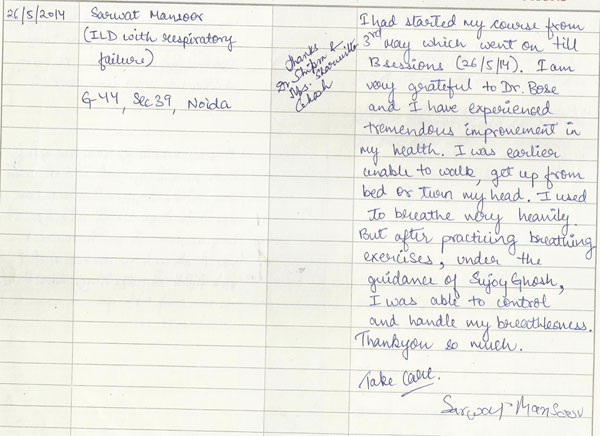 26/5/2014
Sarwat Mansoor
(ILD with respiratory
failure)
G-44, Sec 39, Noida
Thanks
Dr. Shipra &
Mrs.
Ghosh
I had started my course from
3rd May which went on till
8 sessions (26/5/14). I am
very grateful to Dr. Bose
and I have experienced
tremendous improvement in
my health. I was earlier
unable to walk, get up from
bed or turn my head. I used
to breathe very heavily.
But after practicing breathing
exercises, under the
guidance of Sujoy Ghosh,
I was able to control
and handle my breathlesness.
Thankyou so much.
Take Care.
Sarwat Mansoor